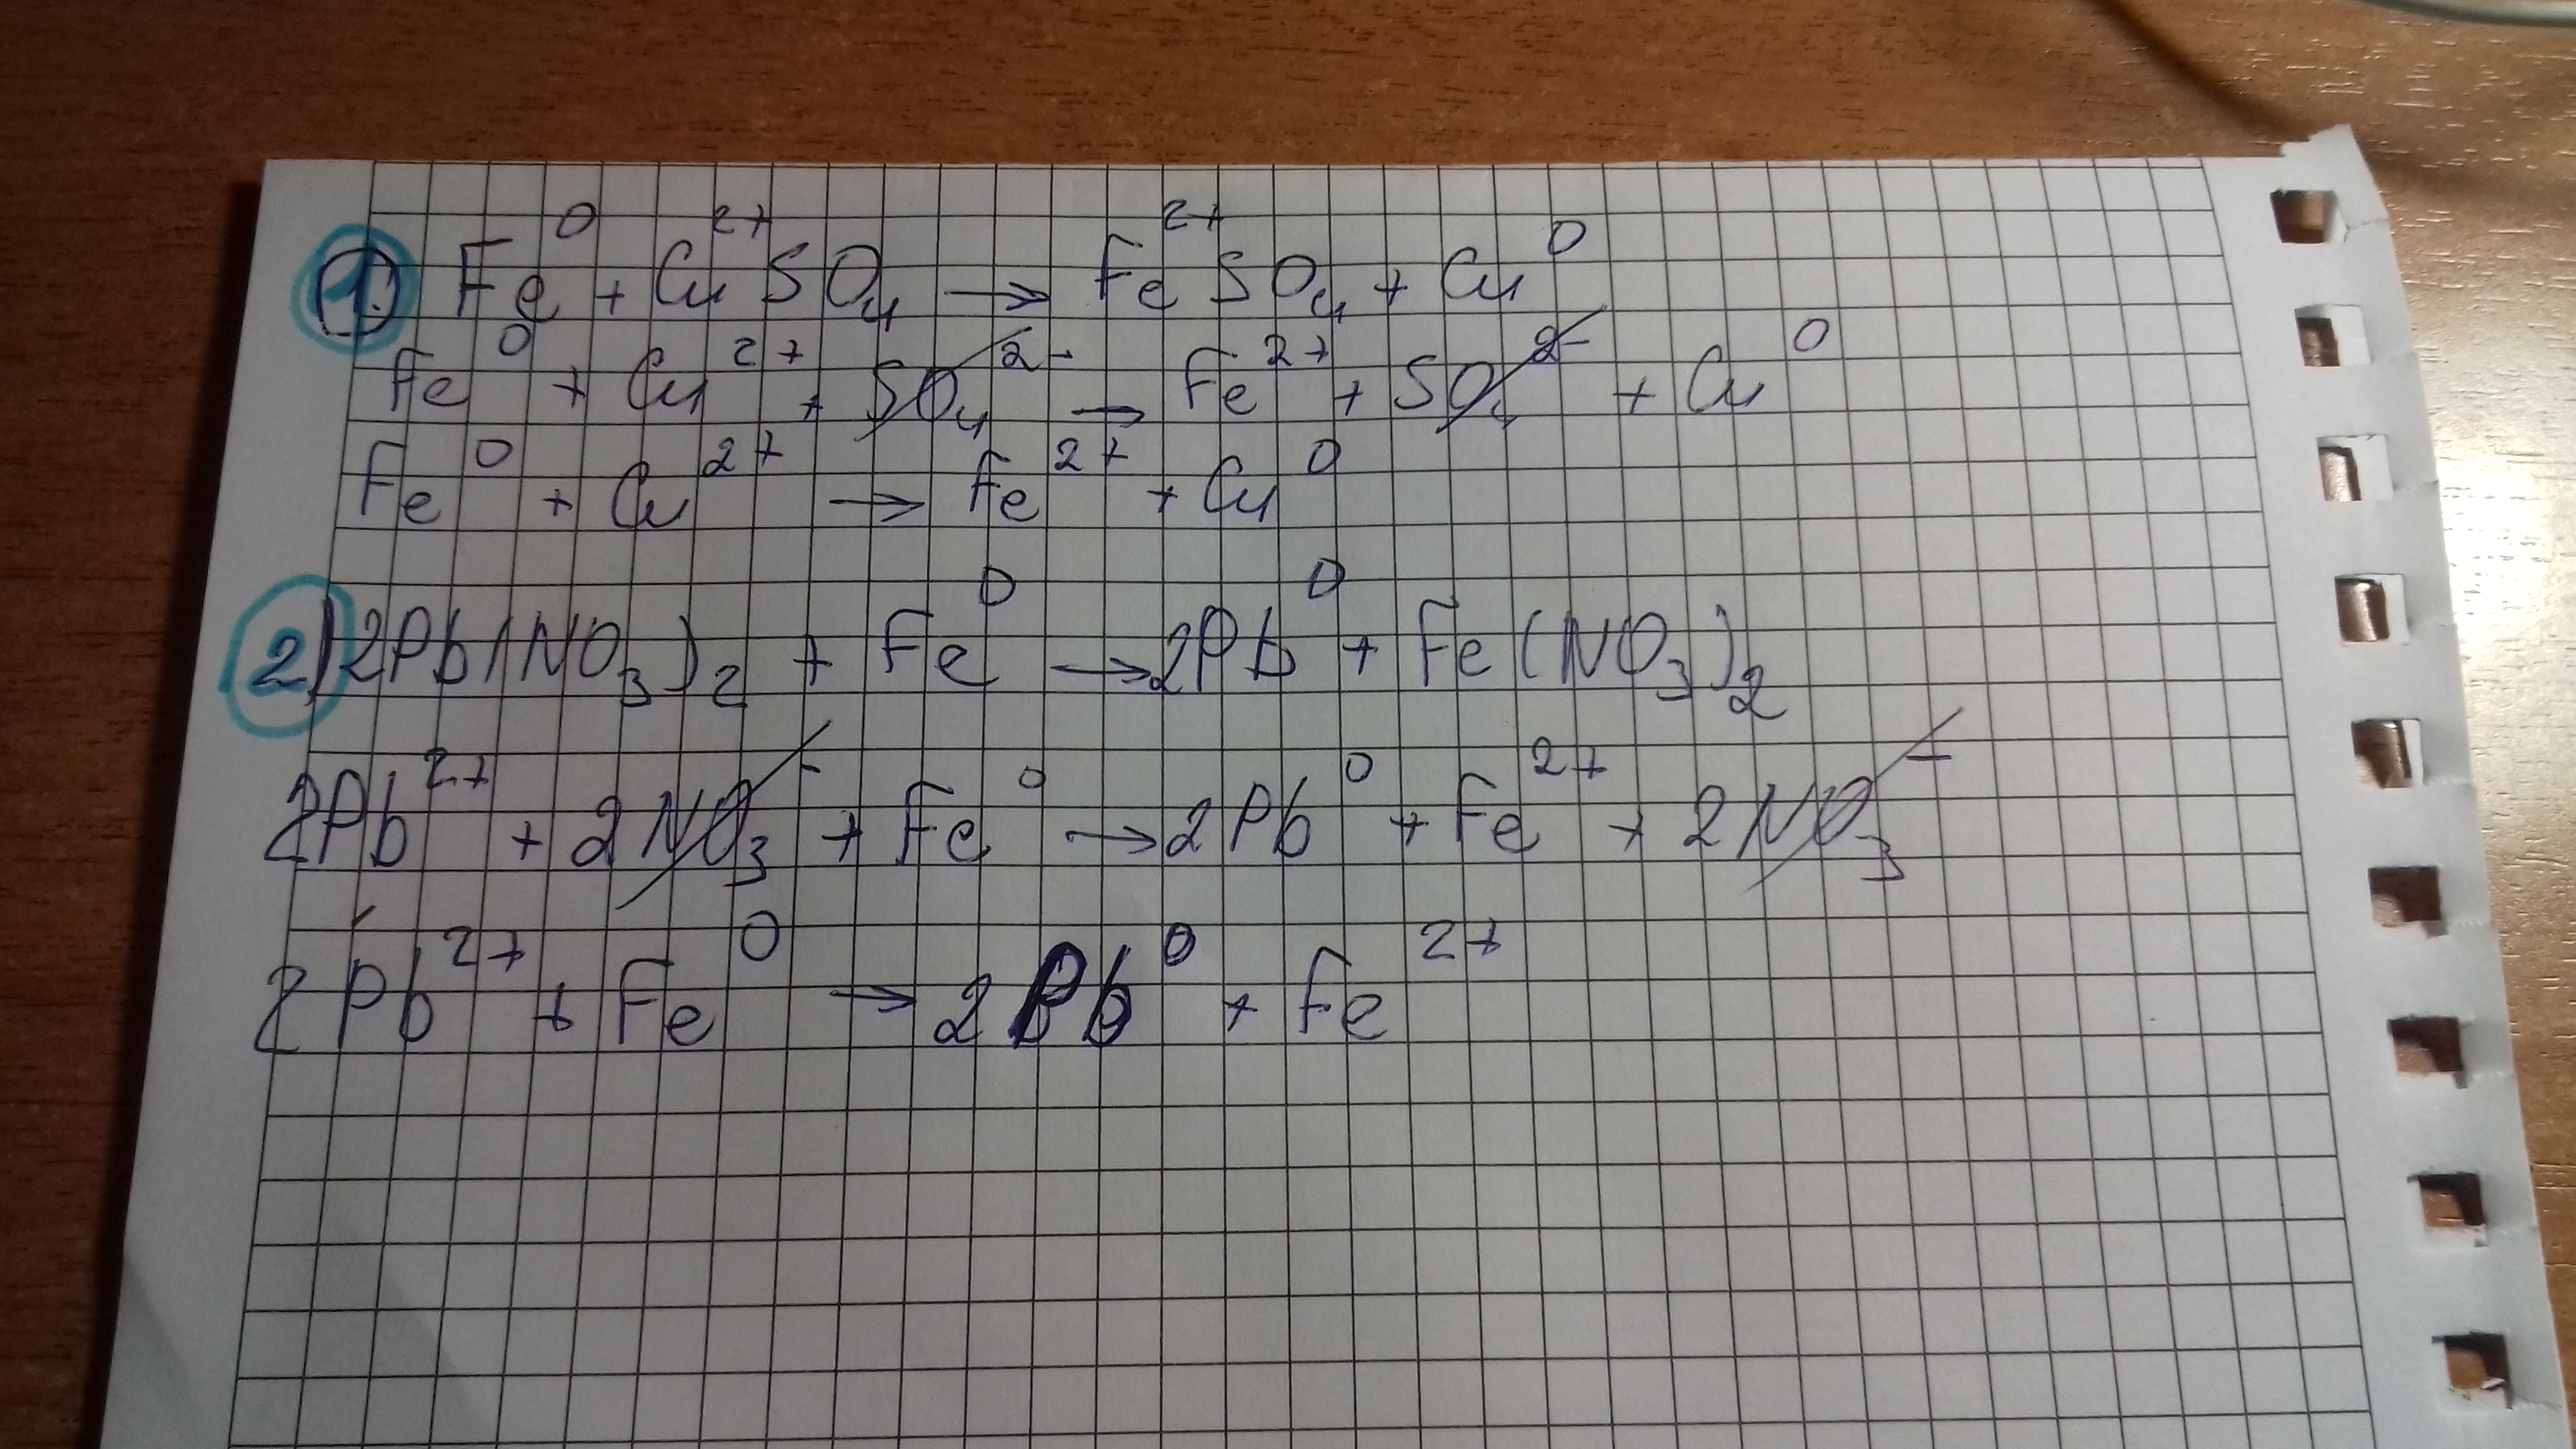 1) Fe⁰ + Cu²⁺SO₄ → Fe²⁺SO₄ + Cu⁰
Fe⁰ + Cu²⁺ + SO₄²⁻ → Fe²⁺ + SO₄²⁻ + Cu⁰
Fe⁰ + Cu²⁺ → Fe²⁺ + Cu⁰
2) 2Pb(NO₃)₂ + Fe⁰ → 2Pb⁰ + Fe(NO₃)₂
2Pb²⁺ + 2NO₃⁻ + Fe⁰ → 2Pb⁰ + Fe²⁺ + 2NO₃⁻
2Pb²⁺ + Fe⁰ → 2Pb⁰ + Fe²⁺